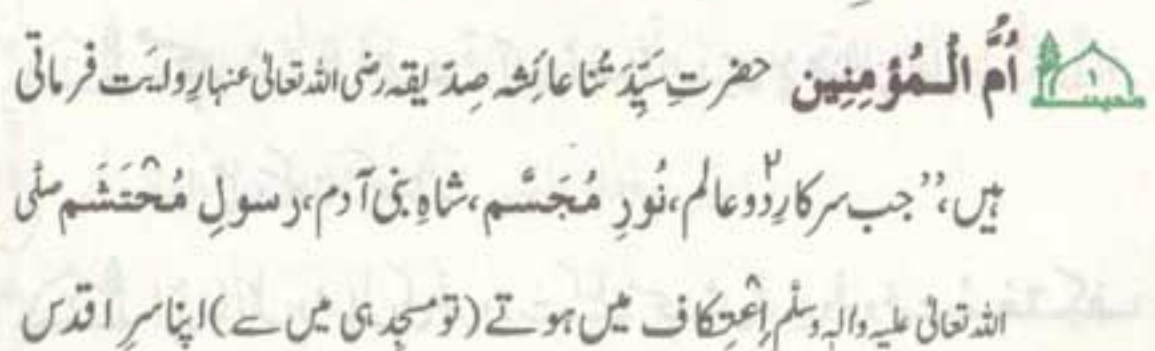 ۱ اُمُّ الْمُؤمِنِین حضرتِ سَیِّدَتُنا عائِشہ صِدّیقہ رضی اللہ تعالیٰ عنہا رِوایَت فرماتی
ہیں، ’’جب سرکارِ دُو۲ عالم، نُورِ مُجَسَّم، شاہِ بنی آدم، رسولِ مُحْتَشَم صلی
اللہ تعالیٰ علیہ والہٖ وسلّم اِعْتِکاف میں ہوتے (تو مسجِد ہی میں سے) اپنا سرِ اقدس